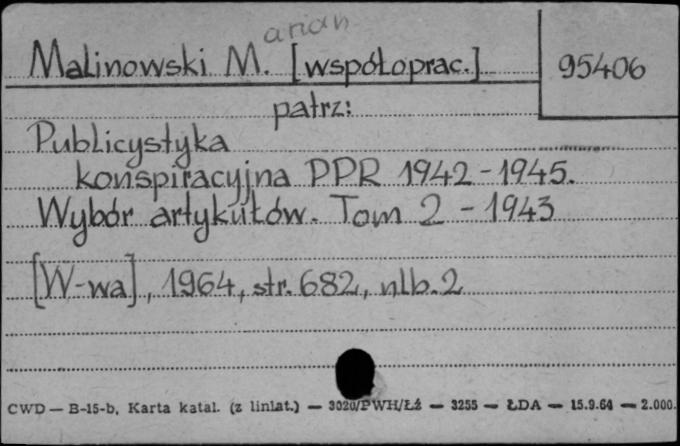 arian
Malinowski M. [współoprac.] 95406
patrz:
Publicystyka
konspiracyjna PPR 1942-1945.
Wybór artykułów. Tom 2 - 1943
[W-wa], 1964, str. 682, nlb. 2
CWD — B-15-b, Karta katal. (z liniat.) — 3020/PWH/ŁŹ — 3255 — ŁDA — 15.9.64 — 2.000.